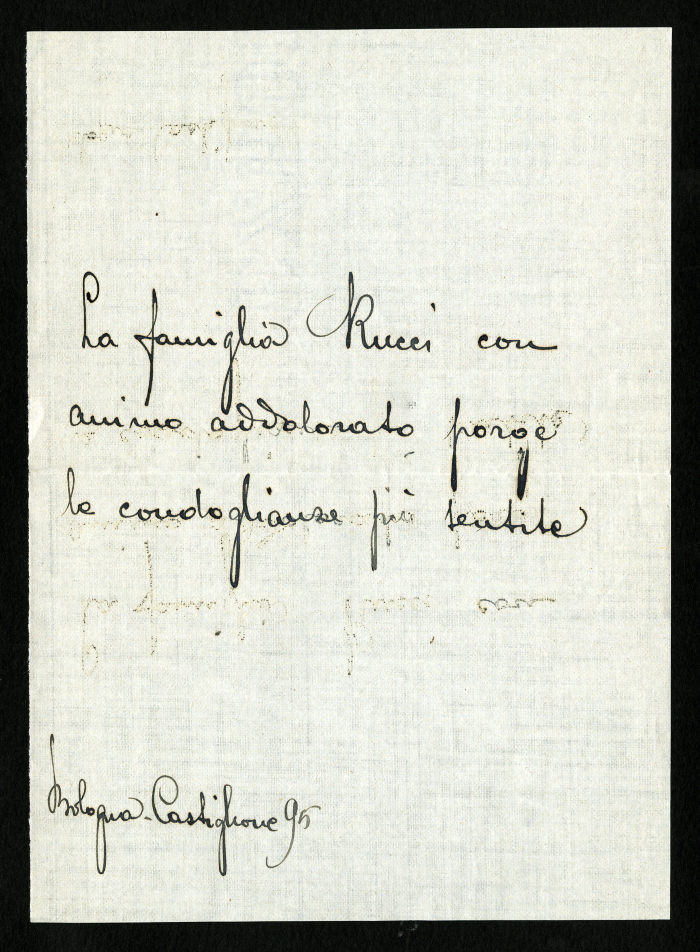 La famiglia Rucci con
animo addolorato porge
le condoglianze più sentite
Bologna-Castiglione 95